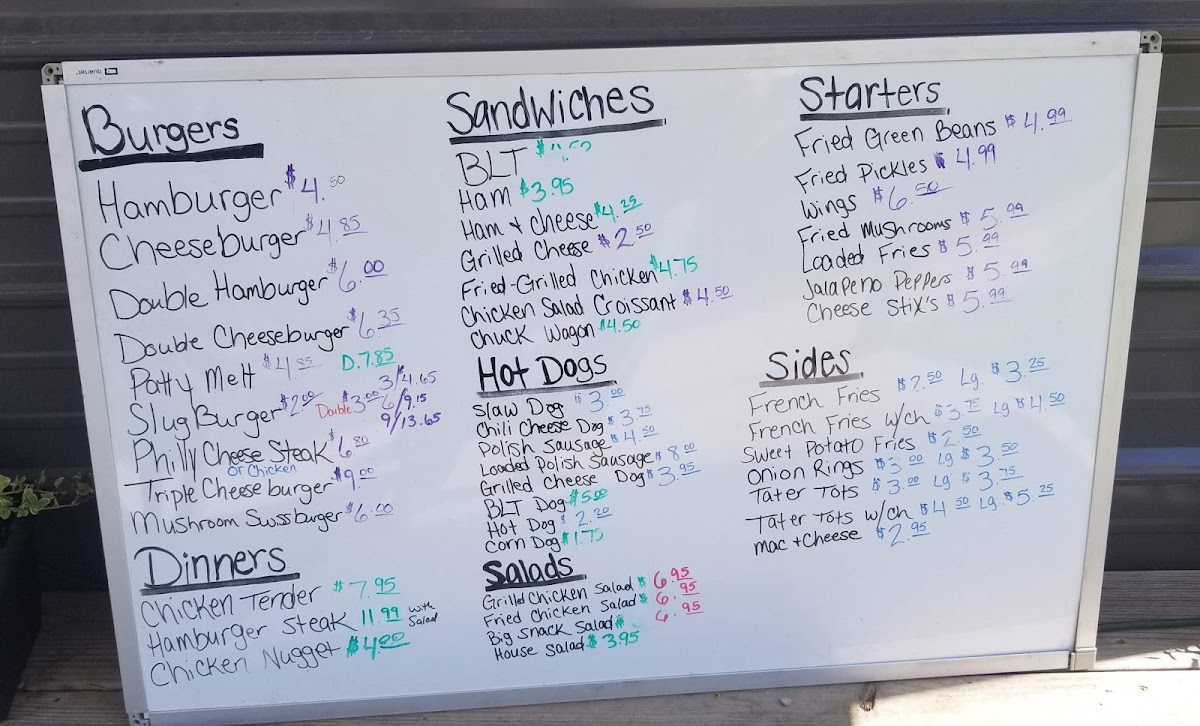 Burgers
Hamburger $4.50
Cheeseburger $4.85
Double Hamburger $6.00
Double Cheeseburger $6.35
Patty Melt $4.85 D.7.85
Slug Burger $2.00 Double $3.00 3/4.65
6/9.15
9/13.65
Philly Cheese Steak $6.80
or Chicken
Triple Cheeseburger $9.00
Mushroom Swissburger $6.00
Dinners
Chicken Tender $7.95
Hamburger Steak 11.99 with Salad
Chicken Nugget $4.00
Sandwiches
BLT
Ham $3.95
Ham + Cheese $4.25
Grilled Cheese $2.50
Fried-Grilled Chicken $4.75
Chicken Salad Croissant $4.50
Chuck Wagon $4.50
Hot Dogs
Slaw Dog $3.00
Chili Cheese Dog $3.75
Polish Sausage $4.50
Loaded Polish Sausage $8.00
Grilled Cheese Dog $3.95
BLT Dog $5.00
Hot Dog $2.20
Corn Dog $1.75
Salads
Grilled Chicken Salad $6.95
Fried Chicken Salad $6.95
Big Snack Salad $6.95
House Salad $3.95
Starters
Fried Green Beans $4.99
Fried Pickles $4.99
Wings $6.50
Fried Mushrooms $5.99
Loaded Fries $5.99
Jalapeno Peppers $5.99
Cheese Stix's $5.99
Sides
French Fries $2.50 Lg. $3.25
French Fries w/ch $3.75 Lg $4.50
Sweet Potato Fries $2.50
Onion Rings $3.00 Lg $3.50
Tater Tots $3.00 Lg $3.75
Tater Tots w/ch $4.50 Lg. $5.25
Mac + Cheese $2.95